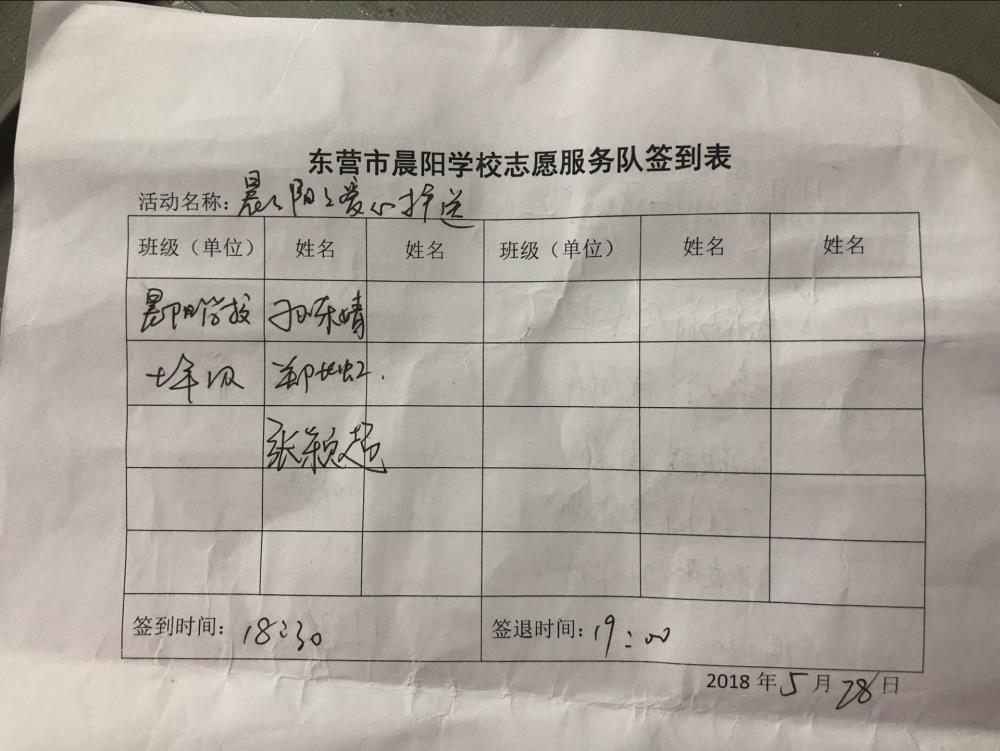 东营市晨阳学校志愿服务队签到表
活动名称：晨阳爱心护送
班级（单位） 姓名 姓名 班级（单位） 姓名 姓名
晨阳学校
七年级 郑艳虹
张颖超
签到时间：18:30 签退时间：19:00
2018年5月28日